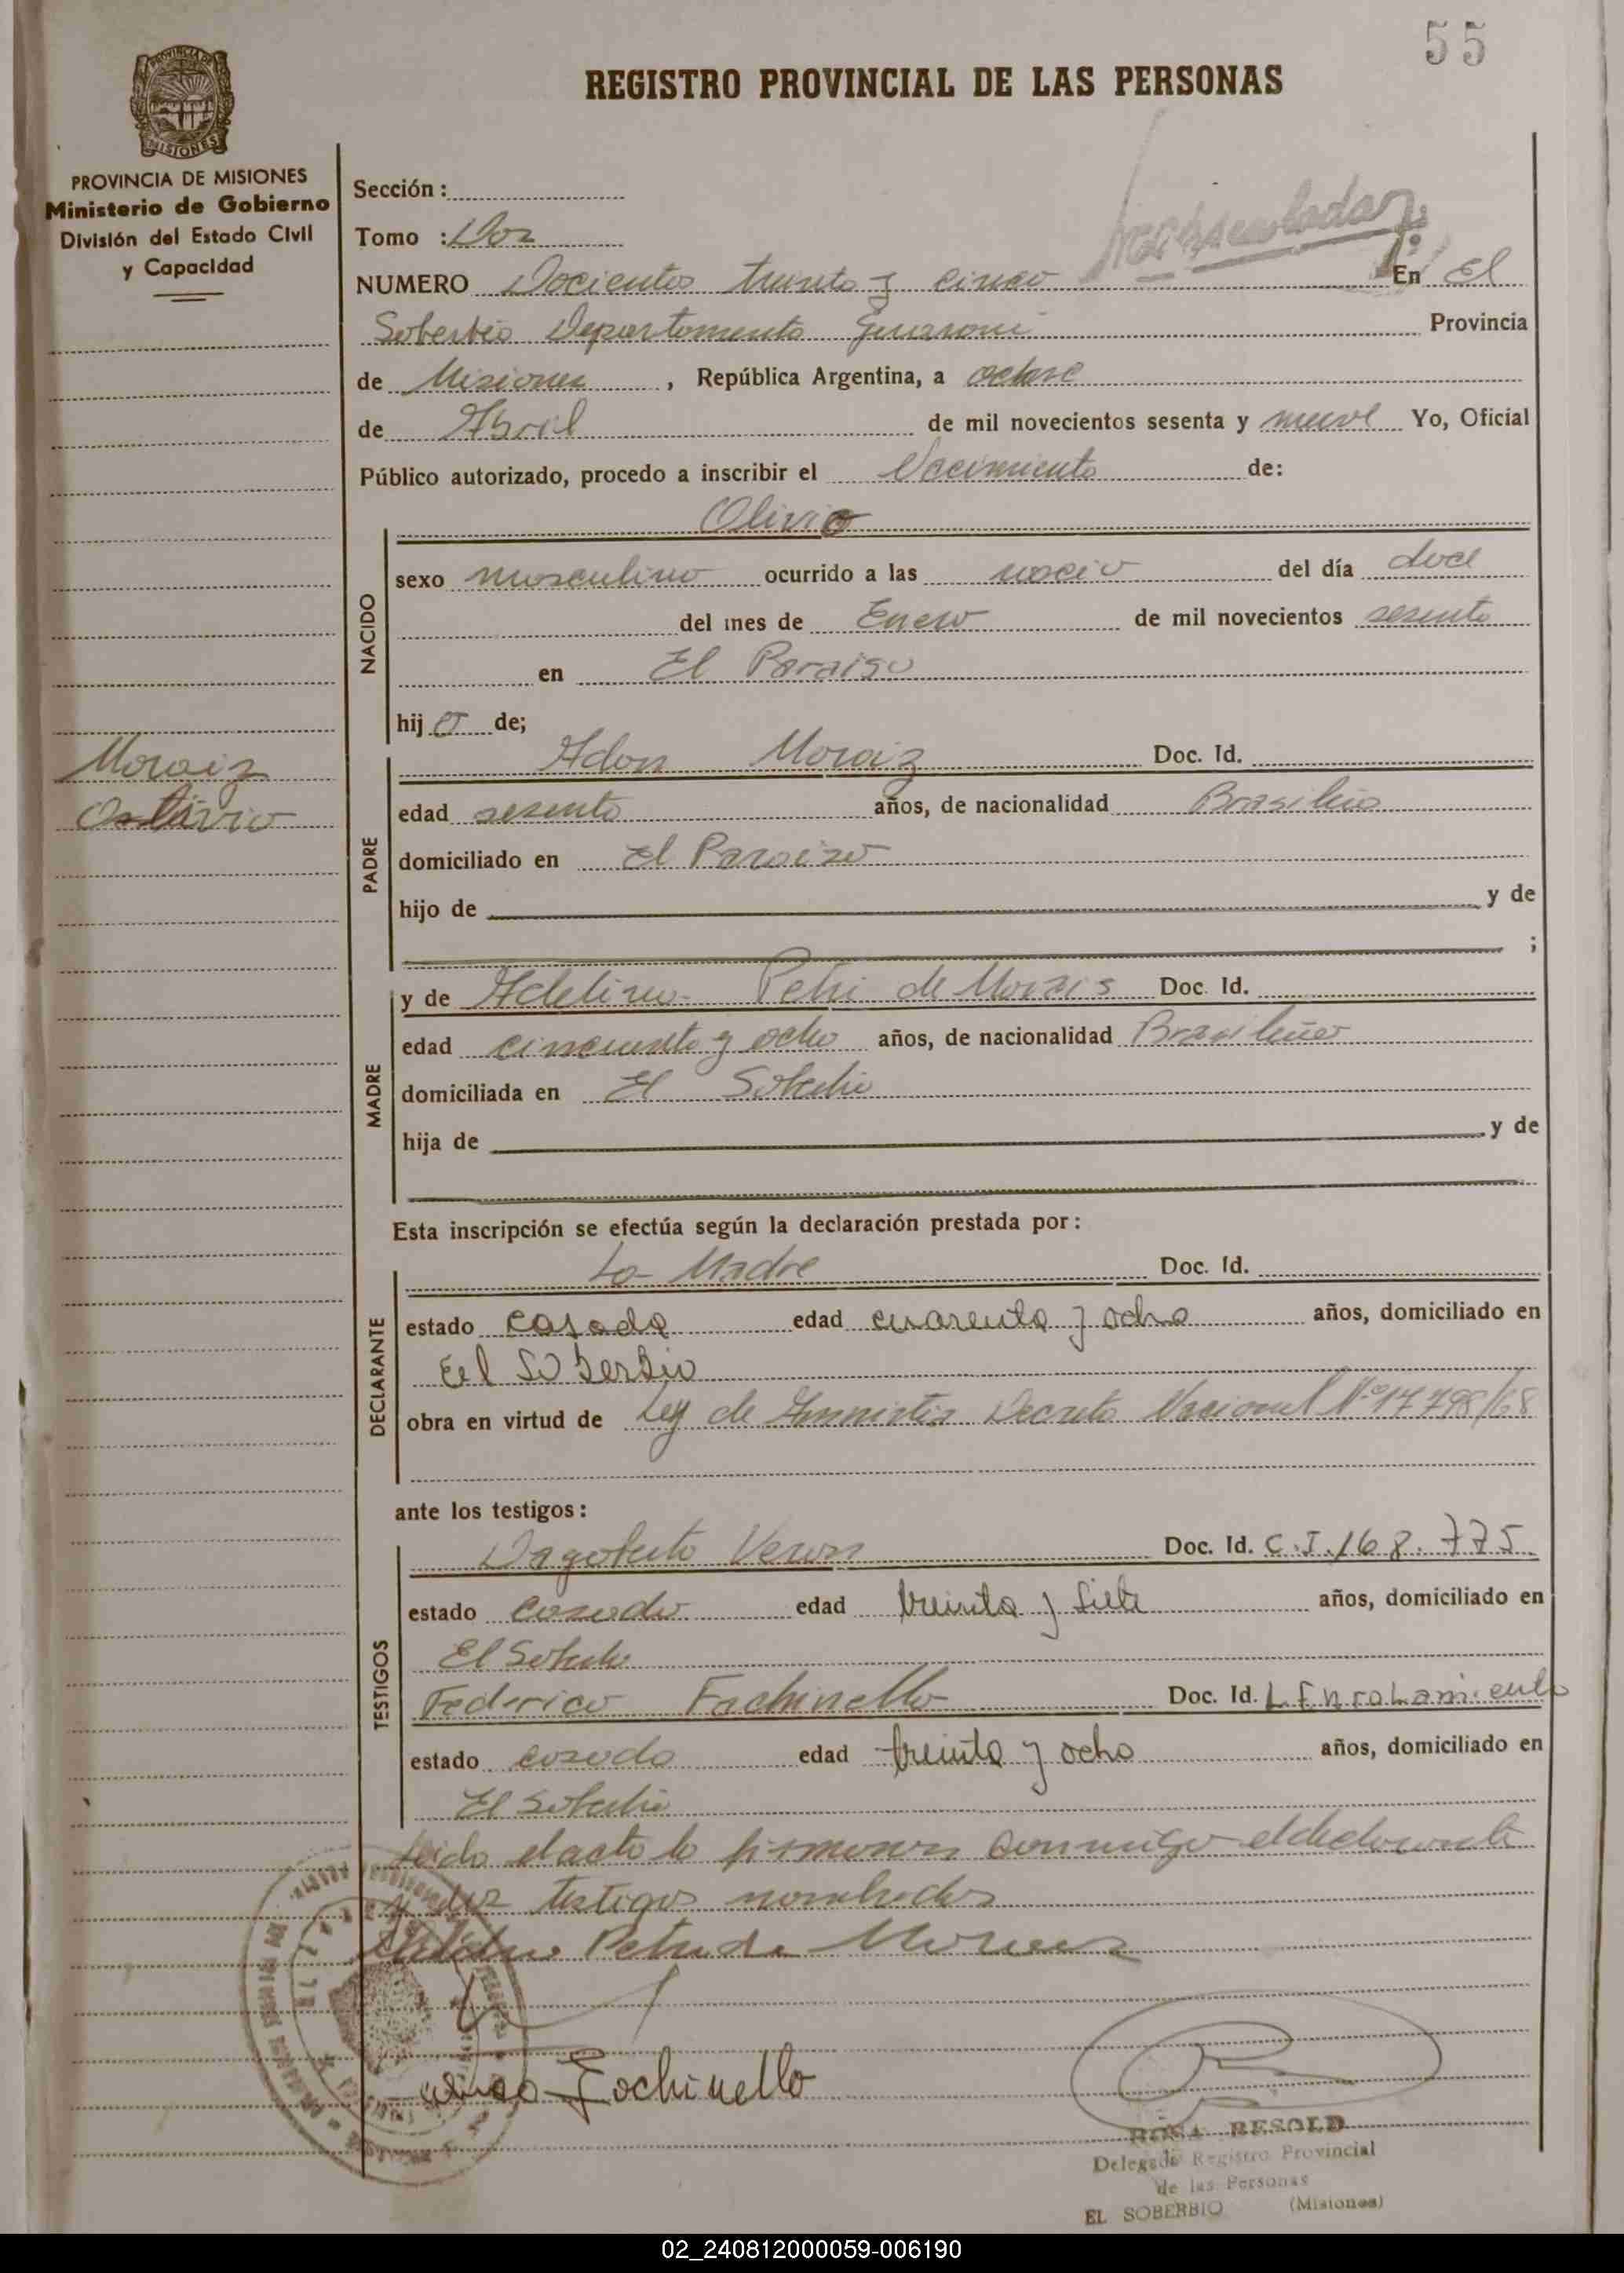 55
REGISTRO PROVINCIAL DE LAS PERSONAS
PROVINCIA DE MISIONES
MISIONES
PROVINCIA DE MISIONES
Ministerio de Gobierno
División del Estado Civil
y Capacidad
Sección :
Tomo : Dos
NUMERO Docientos treinta y cinco En El
Soberbio Departamento Guarani Provincia
de Misiones , República Argentina, a
de Abril de mil novecientos sesenta y nueve Yo, Oficial
Público autorizado, procedo a inscribir el Nacimiento de:
Olivio
NACIDO
sexo masculino ocurrido a las del día doce
del mes de Enero de mil novecientos sesenta
en El Paraiso
hijo de;
Moraiz
PADRE
Adon Moraiz Doc. Id.
edad sesenta años, de nacionalidad
domiciliado en El Paraiso
hijo de y de
;
MADRE
y de Adelina Petri de Morais Doc. Id.
edad cincuenta y ocho años, de nacionalidad Brasileña
domiciliada en El Soberbio
hija de y de
Esta inscripción se efectúa según la declaración prestada por :
DECLARANTE
La Madre Doc. Id.
estado casada edad cuarenta y ocho años, domiciliado en
Eel Soberbio
obra en virtud de Ley de Decreto Nacional Nº 17798/68
ante los testigos :
TESTIGOS
Dagoberto Veron Doc. Id. C.I. 168.775
estado casado edad treinta y siete años, domiciliado en
El Soberbio
Federico Fachinello Doc. Id. L Enrolamiento
estado casado edad treinta y ocho años, domiciliado en
El Soberbio
Leido el acto lo firmaron conmigo el declarante
y los testigos nombrados
Petri de Moraes
Fochinello
ROSA BESOLD
Delegada Registro Provincial
de las Personas
EL SOBERBIO (Misiones)
02_240812000059-006190